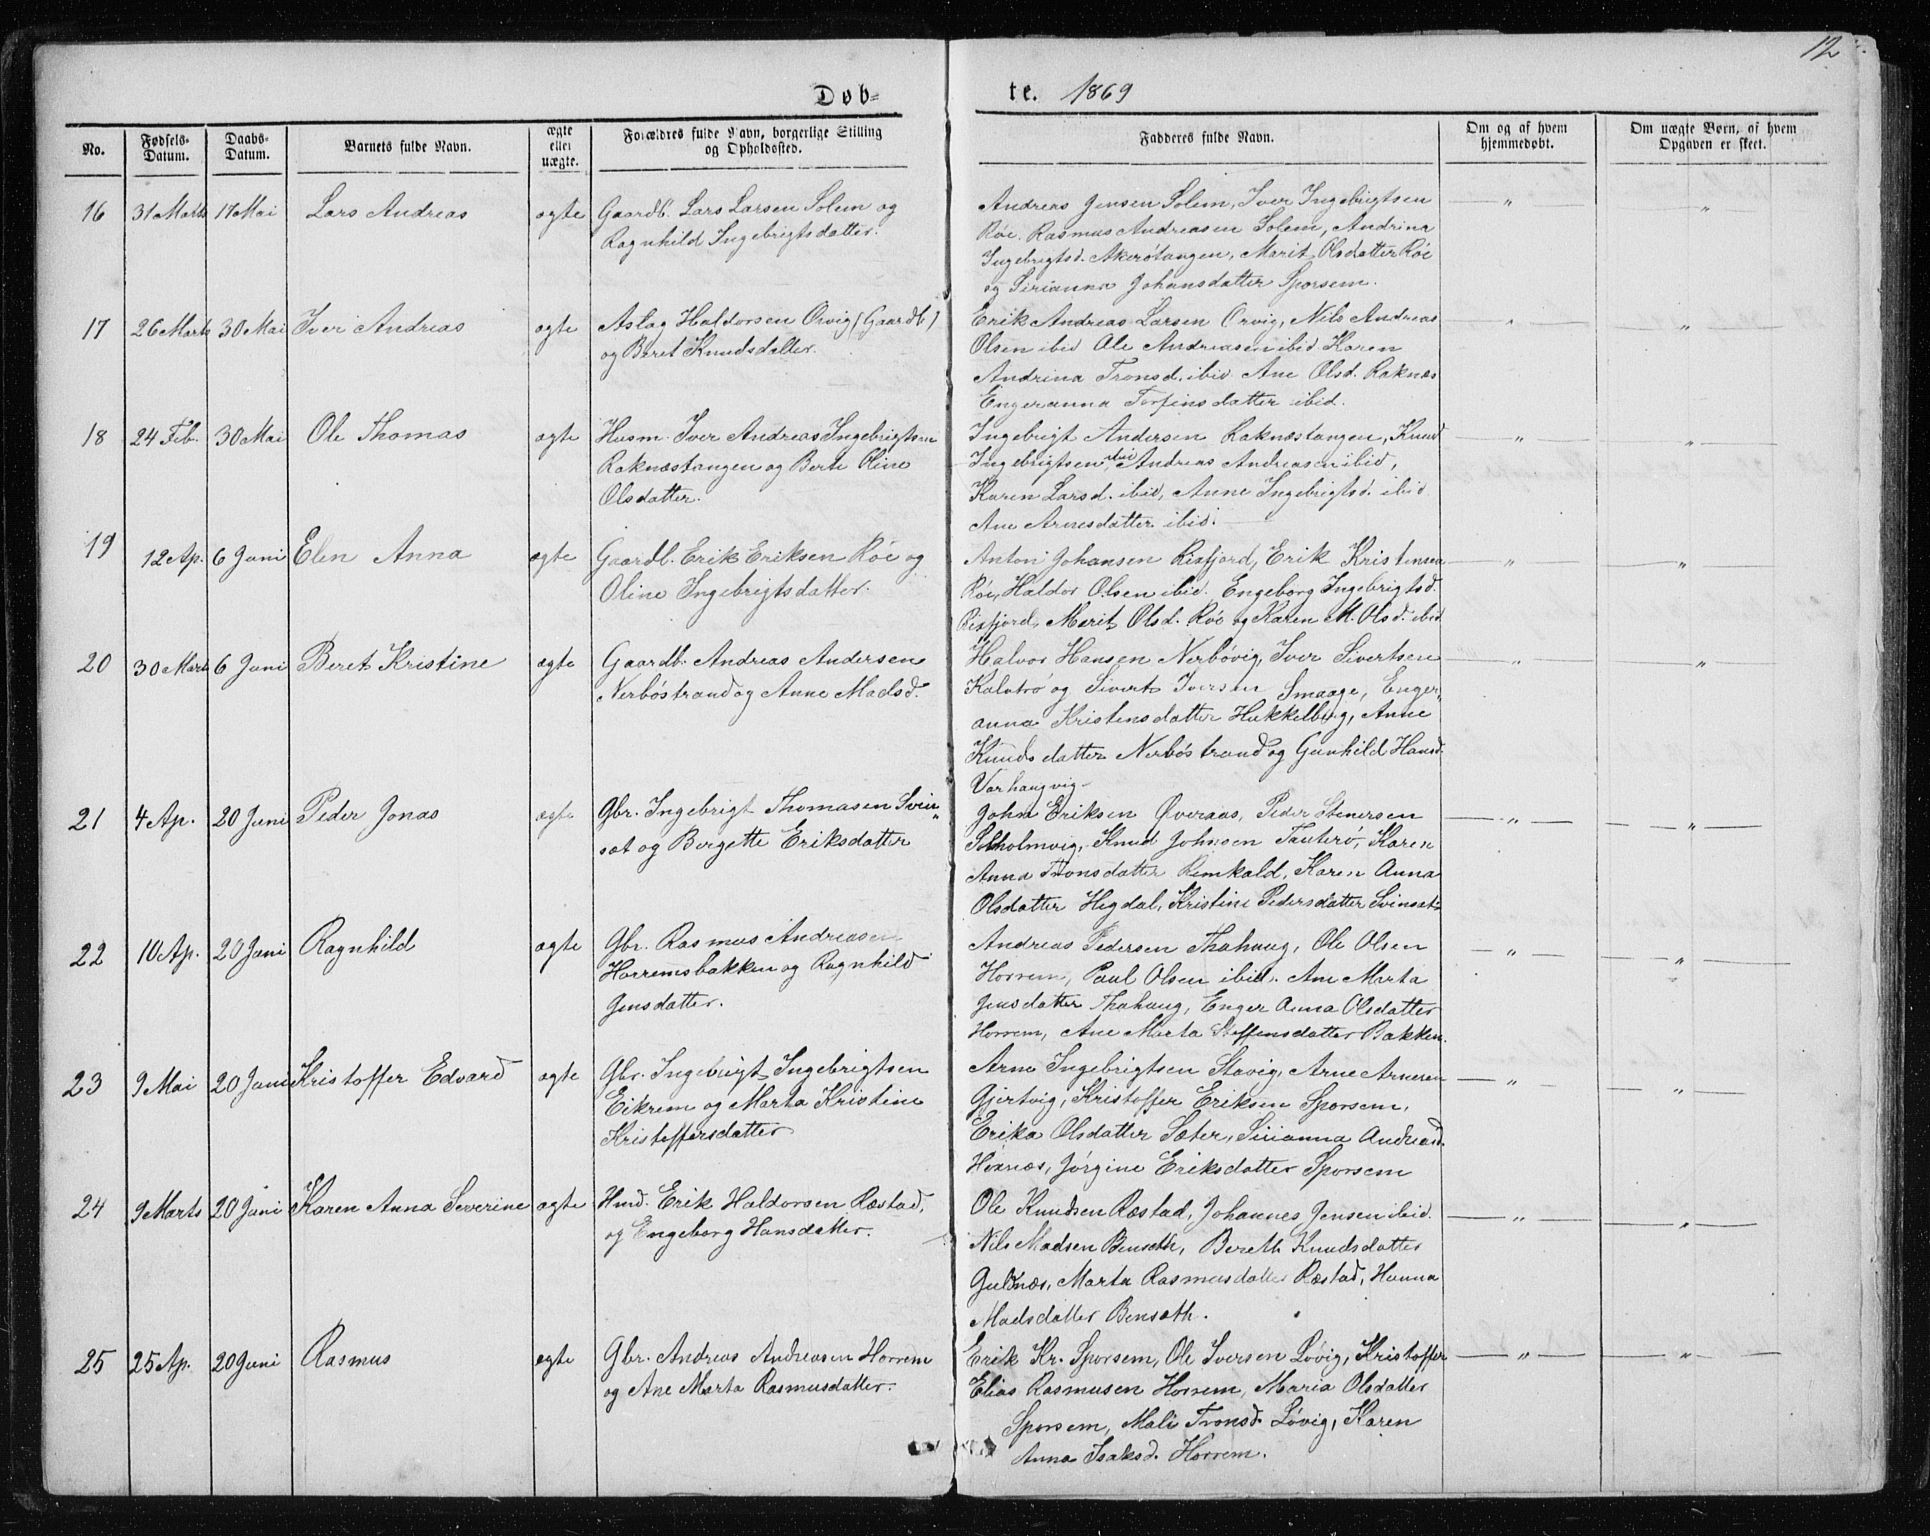 12
Døb-
te. 1869
No.
Fødsels-Datum.
Daabs-Datum.
Barnets fulde Navn.
ægte eller uægte.
Forældres fulde Navn, borgerlige Stilling og Opholdssted.
Fadderes fulde Navn.
Om og af hvem hjemmedøbt.
Om uægte Børn, af hvem Opgaven er skeet.
16 31 Marts 17 Mai Lars Andreas ægte
Gaardb. Lars Larsen Solem og
Ragnhild Ingebrigtsdatter.
Andreas Jensen Solem, Iver Ingebrigtsen
Röe. Rasmus Andreasen Solem, Andrina
Ingebrigtsd. Akerötangen, Marit Olsdatter Röe
og Sirianna Johansdatter Sporsem.
17 26 Marts 30 Mai Iver Andreas ægte
Aslag Haldorsen Orvig (Gaardb)
og Beret Knudsdatter.
Erik Andreas Larsen Orvig, Nils Andreas
Olsen ibid Ole Andreasen ibid. Karen
Andrina Tronsd. ibid. Ane Olsd. Raknæs
Engeranna Torfinsdatter ibid.
18 24 Feb. 30 Mai Ole Thomas ægte
Husm. Iver Andreas Ingebrigtsen
Raknæstangen og Berit Oline
Olsdatter.
Ingebrigt Andersen Raknæstangen, Knud
Ingebrigtsen ibid Andreas Andreasen ibid,
Karen Larsd. ibid, Anne Ingebrigtsd. ibid
Ane Arnesdatter ibid.
19 12 Ap. 6 Juni Elen Anna ægte
Gaardb. Erik Eriksen Röe og
Oline Ingebrigtsdatter.
Anton Johansen Risfjord, Erik Kristensen
Röe, Haldor Olsen ibid. Engeborg Ingebrigtsd.
Risfjord, Merit Olsd. Röe og Karen M. Olsd. ibid
20 30 Marts 6 Juni Beret Kristine ægte
Gaardb. Andreas Andersen
Nerböstrand og Anne Madsd.
Halvor Hansen Nerbövig, Iver Sivertsen
Kalvtrö og Sivert Iversen Smaage, Enger-
anna Kristensdatter Hukkelberg, Anne
Knudsdatter Nerböstrand og Gunhild Hansd.
Varhaugvig
21 4 Ap. 20 Juni Peder Jonas ægte
Gbr. Ingebrigt Thomasen Svin-
sæt og Bergette Eriksdatter
John Eriksen Øveraas, Peder Stenersen
Solholmvig, Knud Johnsen Tauterö, Karen
Anna Tronsdatter Remkald, Karen Anna
Olsdatter Hegdal, Kristine Pedersdatter Svinsæt
22 10 Ap. 20 Juni Ragnhild ægte
Gbr. Rasmus Andreasen
Horremsbakken og Ragnhild
Jensdatter.
Andreas Pedersen Thahaug, Ole Olsen
Horrem, Paul Olsen ibid. Ane Marta
Jensdatter Thahaug, Enger Anna Olsdatter
Horrem, Ane Marta Steffensdatter Bakken.
23 9 Mai 20 Juni Kristoffer Edvard ægte
Gbr. Ingebrigt Ingebrigtsen
Eikrem og Marta Kristine
Kristoffersdatter
Arne Ingebrigtsen Stavig, Arne Arnesen
Gjertvig, Kristoffer Eriksen Sporsem.
Erika Olsdatter Sæter, Sirianna Andreasd.
Hoxnæs, Jörgine Eriksdatter Sporsem
24 9 Marts 20 Juni Karen Anna Severine ægte
Hmd. Erik Haldorsen Ræstad,
og Engeborg Hansdatter.
Ole Knudsen Ræstad, Johannes Jensen ibid.
Nils Madsen Bensæth, Bereth Knudsdatter
Guldnæs, Marta Rasmusdatter Ræstad, Hanna
Madsdatter Bensæth.
25 25 Ap. 20 Juni Rasmus ægte
Gbr. Andreas Andreasen Horrem
og Ane Marta Rasmusdatter.
Erik Kr. Sporsem, Ole Iversen Lövig, Kristoffer
Elias Rasmusen Horrem, Maria Olsdatter
Sporsem, Mali Tronsd. Lövig, Karen
Anna Isaksd. Horrem.